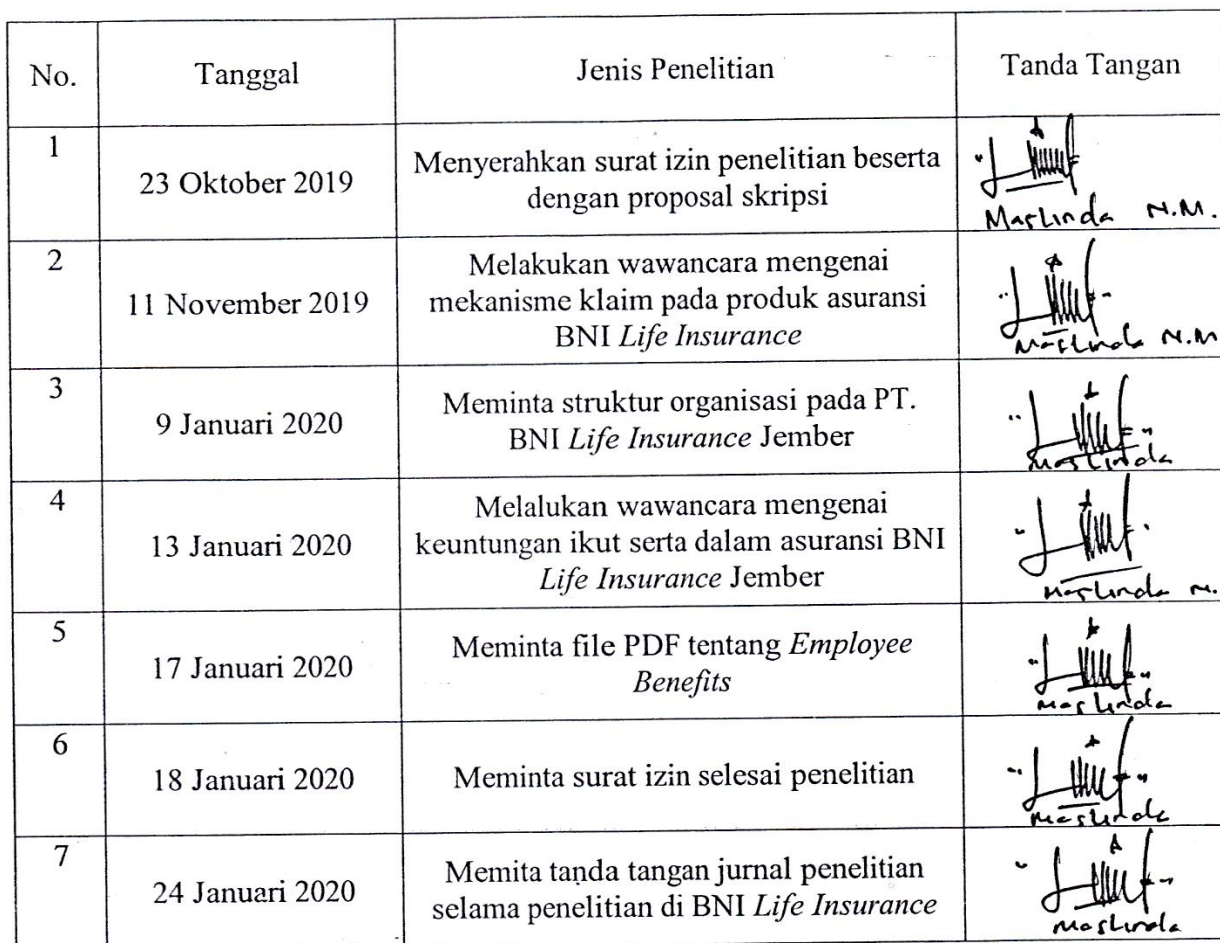 No. Tanggal Jenis Penelitian Tanda Tangan
1
23 Oktober 2019
Menyerahkan surat izin penelitian beserta
dengan proposal skripsi
Maslinda N.M.
2
11 November 2019
Melakukan wawancara mengenai
mekanisme klaim pada produk asuransi
BNI Life Insurance
Maslinda N.M
3
9 Januari 2020
Meminta struktur organisasi pada PT.
BNI Life Insurance Jember
Maslinda
4
13 Januari 2020
Melalukan wawancara mengenai
keuntungan ikut serta dalam asuransi BNI
Life Insurance Jember
Maslinda N.
5
17 Januari 2020
Meminta file PDF tentang Employee
Benefits
Maslinda
6
18 Januari 2020
Meminta surat izin selesai penelitian
Maslinda
7
24 Januari 2020
Memita tanda tangan jurnal penelitian
selama penelitian di BNI Life Insurance
Maslinda